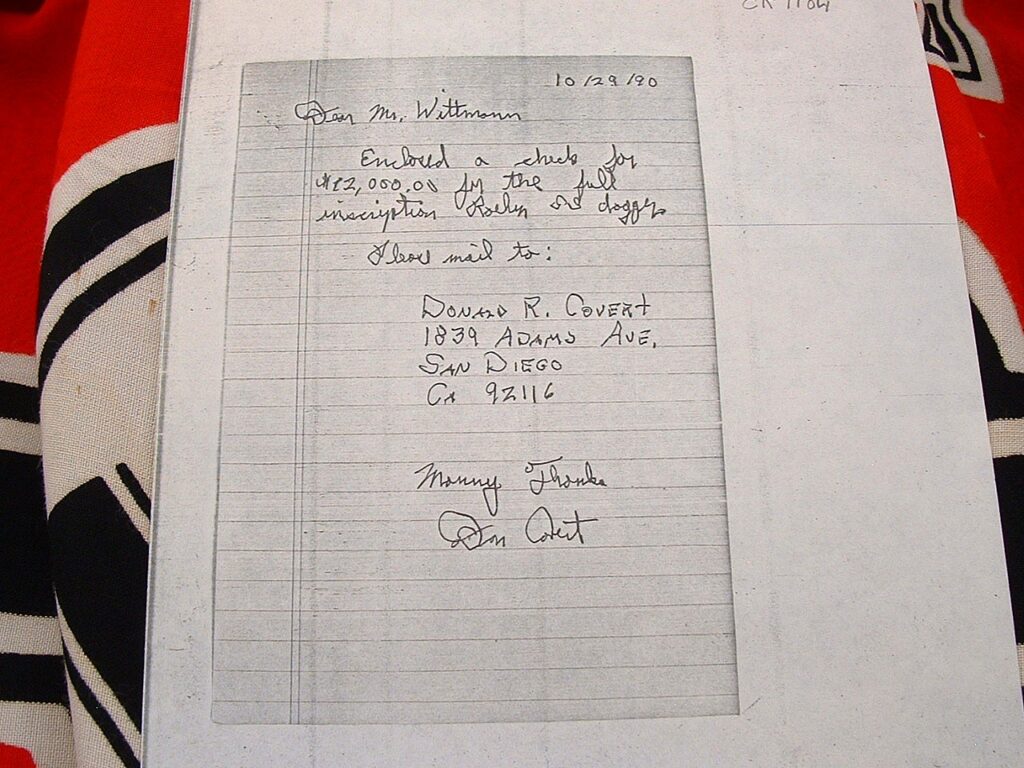 CK 1104
10/29/90
Dear Mr. Wittmann
Enclosed a check for
$12,000.00 for the full
inscription Roehm SS dagger
Please mail to:
Donald R. Covert
1839 Adams Ave.
San Diego
Ca 92116
Manny Thanks
Don Covert